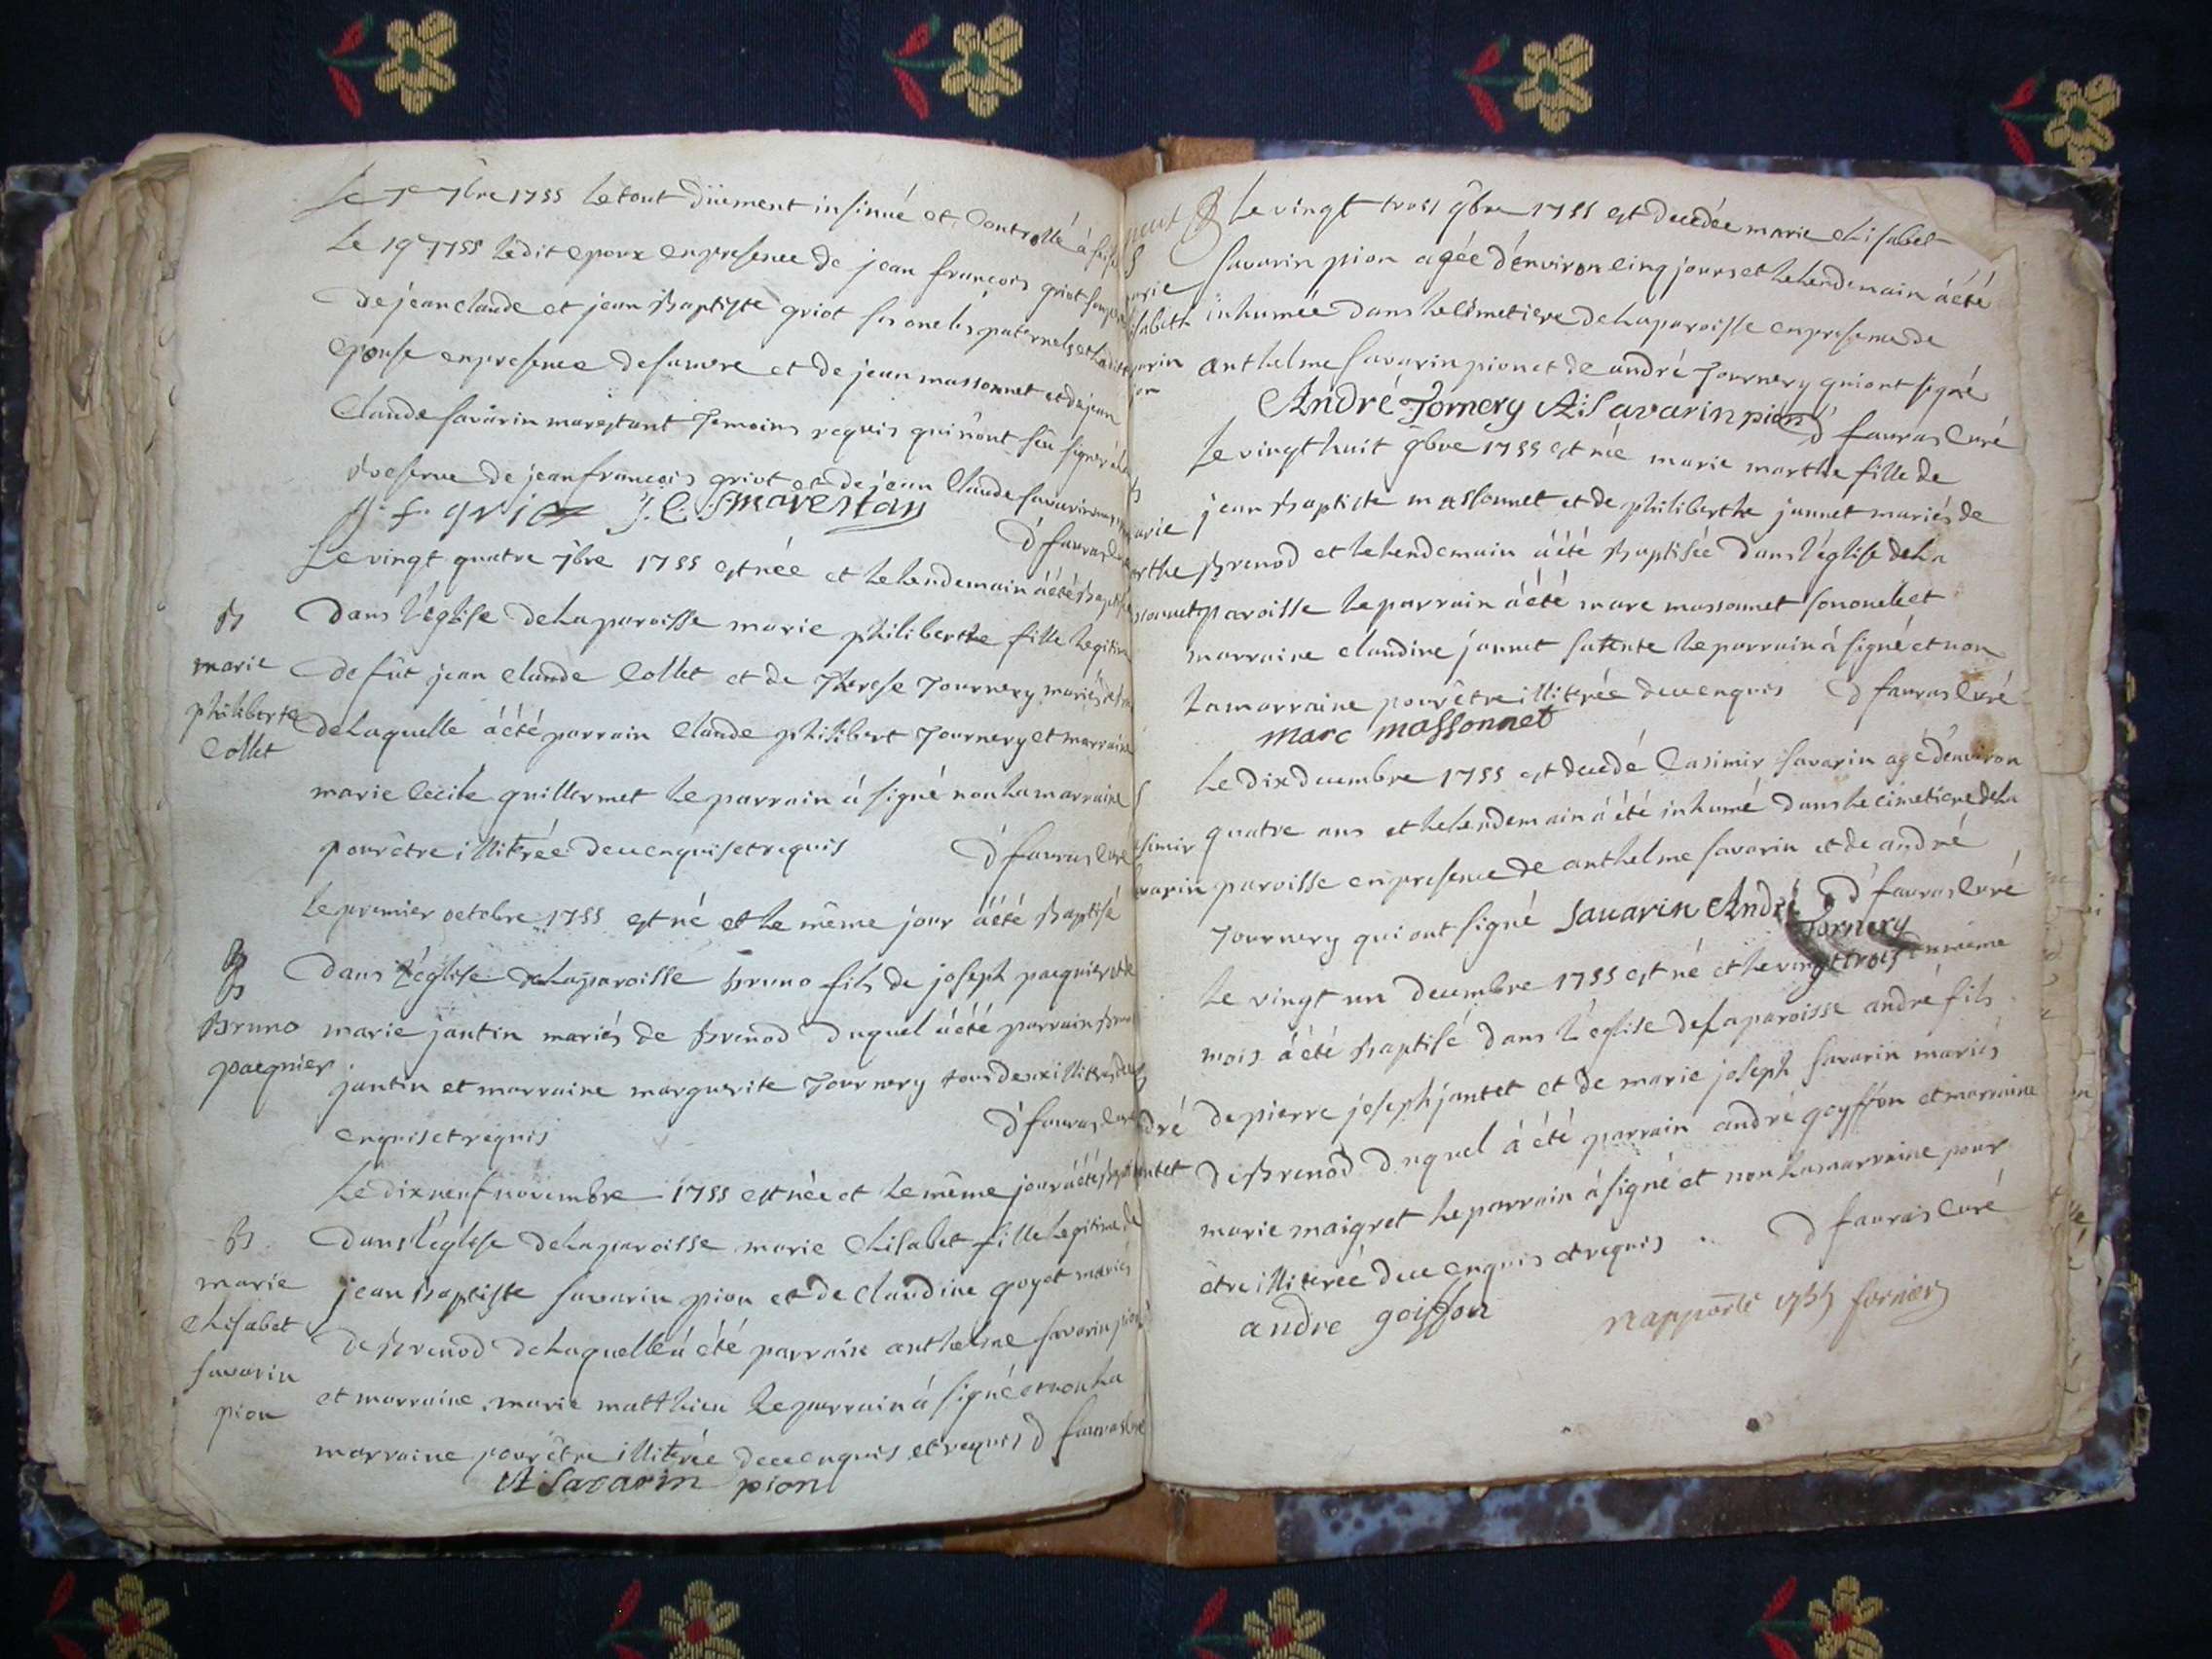 Le 7e 7bre 1755 le tout düement insinué et controllé à
le 19e 7 1755 ledit epoux en presence de jean françois griot
de jean claude et jean Baptiste griot ses oncles paternels et ladite
epouse en presence de sa mere et de jean massonnet et de jean
Claude savarin marestant temoins requis qui n'ont sçu signer à la
reserve de jean françois griot et de jean Claude savarin
j. f. griot J. C. S. marestan
D fauras Curé
Le vingt quatre 7bre 1755 est née et le lendemain à été Baptisée
B
marie
philiberte
Collet
Dans l'église de la paroisse marie philiberthe fille legitime
de fût jean claude Collet et de Therese Tournery mariés
de laquelle à été parrain Claude philibert Tournery et marraine
marie Cécile guillermet le parrain à signé non la marraine
pour être illiterée de ce enquise et requis D fauras Curé
Le premier octobre 1755 est né et le même jour à été Baptisé
B
Bruno
paequier
Dans l'église de la paroisse Bruno fils de joseph paequier et de
marie jantin mariés de Brenod duquel à été parrain
jantin et marraine marguerite Tournery tous deux illiterés
enquis et requis D fauras Curé
Le dix neuf novembre 1755 est née et le même jour à été
B
marie
Elisabet
savarin
pion
Dans l'église de la paroisse marie Elisabet fille legitime de
jean Baptiste savarin pion et de Claudine goyet mariés
de Brenod de laquelle à été parrain anthelme savarin pion
et marraine marie matthieu le parrain à signé et non la
marraine pour être illiterée de ce enquis et requis D fauras Curé
A Savarin pion
Le vingt trois 9bre 1755 est decedée marie elisabet
savarin pion agée d'environ cinq jours et le lendemain à été
inhumée dans le cimetiere de la paroisse en presence de
anthelme savarin pion et de andré Tournery qui ont signé
André Tornery A Savarin pion D fauras Curé
Le vingt huit 9bre 1755 est née marie marthe fille de
jean Baptiste massonnet et de philiberthe jannet mariés de
Brenod et le lendemain à été Baptisée Dans l'église de la
paroisse le parrain à été marc massonnet son oncle et
marraine claudine jannet sa tente le parrain à signé et non
la marraine pour être illiterée de ce enquis D fauras Curé
marc massonnet
Le Dix decembre 1755 est decedé Casimir savarin agé d'environ
quatre ans et le lendemain à été inhumé Dans le cimetiere de la
paroisse en presence de anthelme savarin et de andré
Tournery qui ont signé savarin André Tornery D fauras Curé
Le vingt un decembre 1755 est né et le vingt trois du même
mois à été Baptisé dans l'église de la paroisse andré fils
de pierre joseph jantet et de marie joseph savarin mariés
de Brenod duquel à été parrain andré geyffon et marraine
marie maigret le parrain à signé et non la marraine pour
être illiterée de ce enquis et requis D fauras Curé
andre geiffon
Rapporté 1755